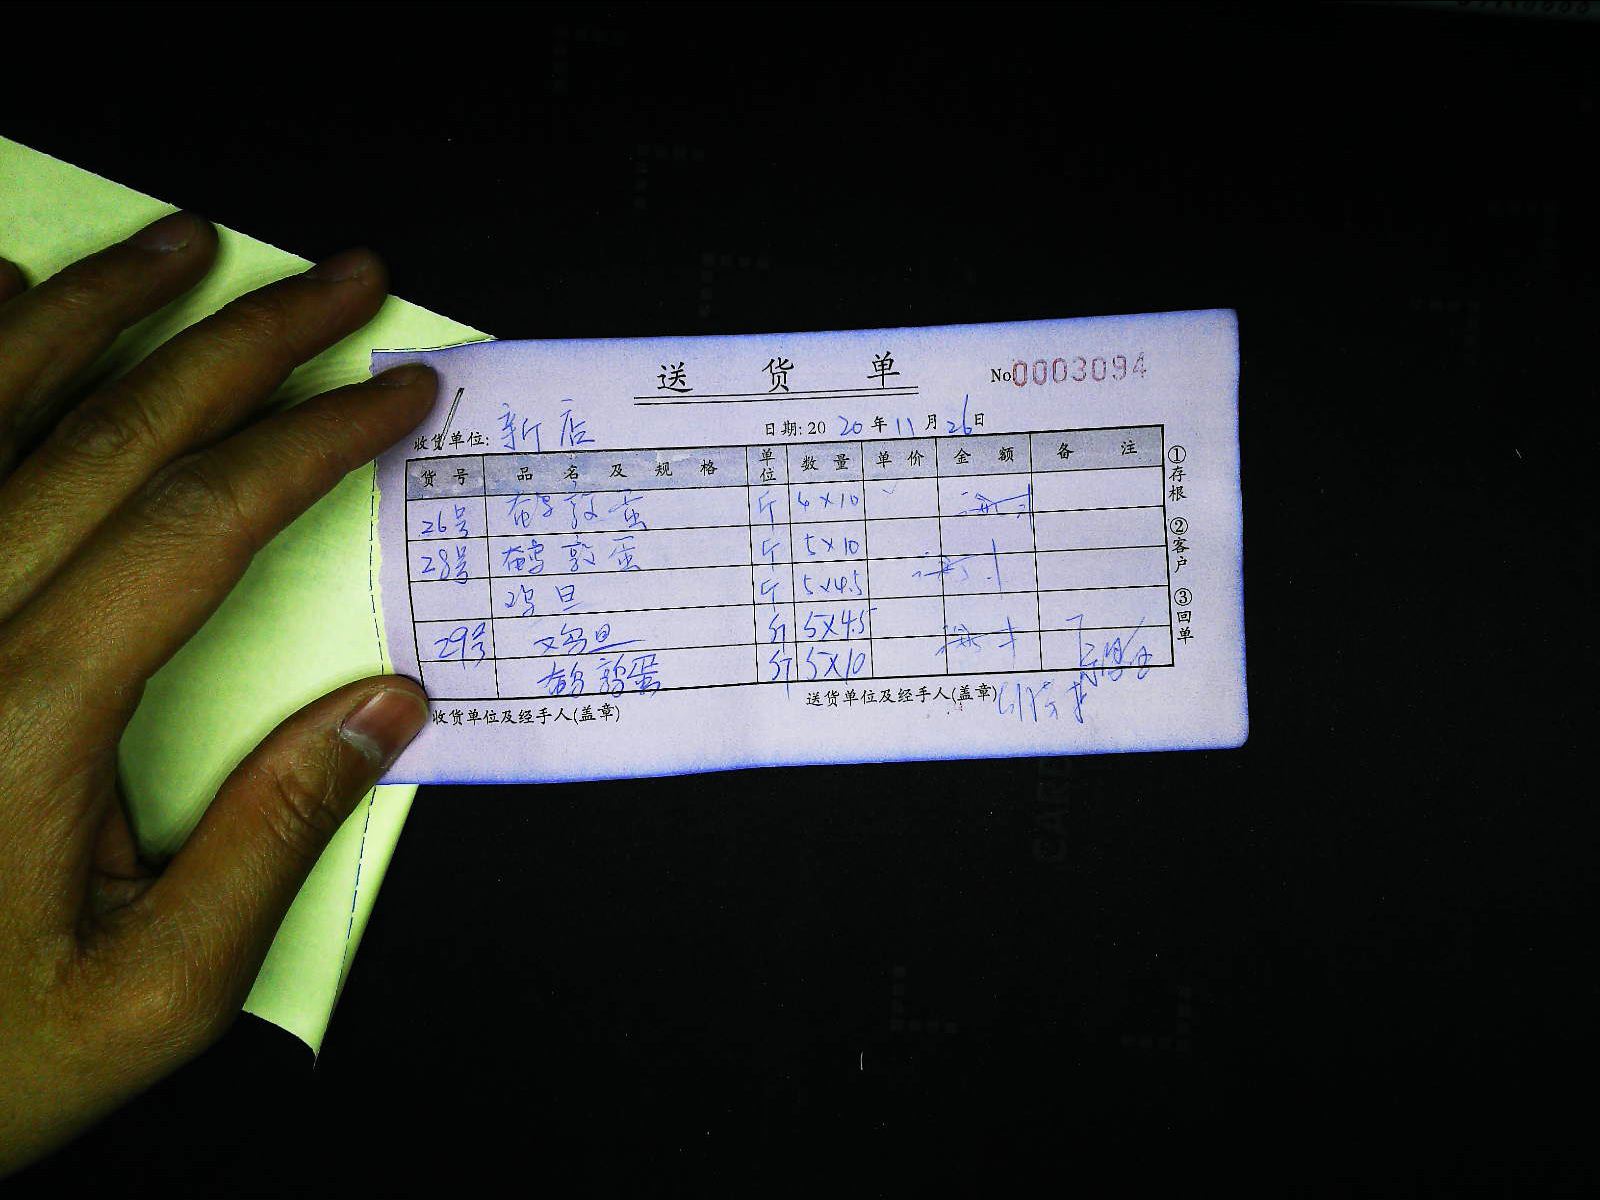 送 货 单
No 0003094
收货单位: 新店 日期: 20 20 年 11 月 26 日
货 号 品 名 及 规 格 单位 数 量 单 价 金 额 备 注
26号 鹌鹑蛋 斤 4×10
28号 鹌鹑蛋 斤 5×10
鸡旦 斤 5×4.5
29号 鸡旦 斤 5×4.5
鹌鹑蛋 斤 5×10
收货单位及经手人(盖章) 送货单位及经手人(盖章)
①存根 ②客户 ③回单